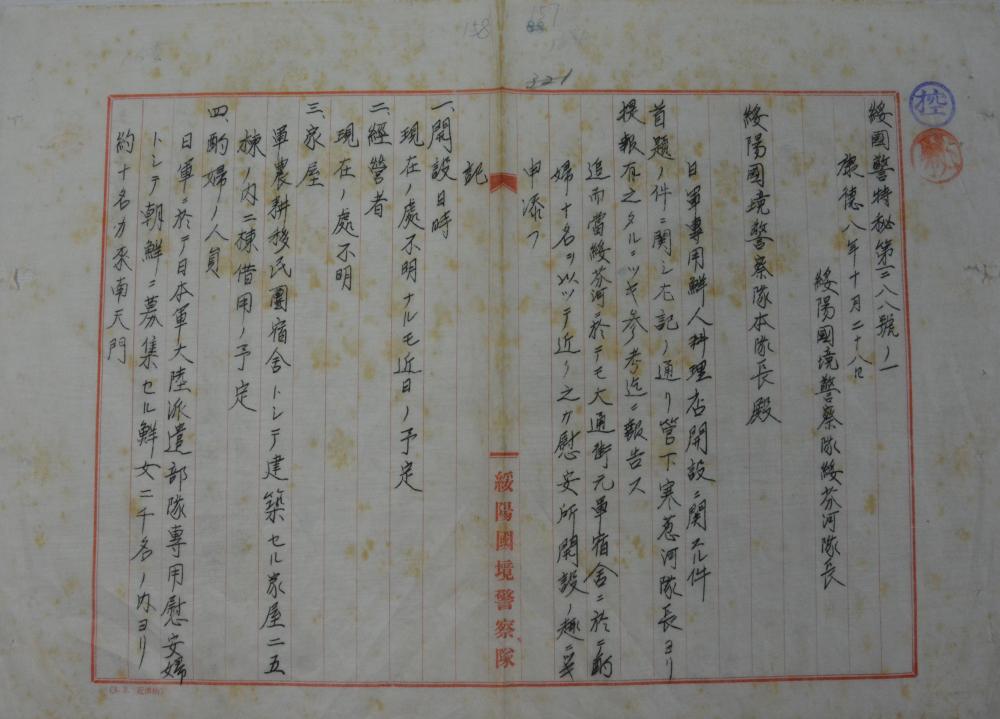 158
157
321
控
綏國警特秘第二八八號ノ一
康德八年十月二十八日
綏陽國境警察隊綏芬河隊長
綏陽國境警察隊本隊長殿
日軍専用鮮人料理店開設ニ関スル件
首題ノ件ニ関シ左記ノ通リ管下寒葱河隊長ヨリ
提報有之タルニツキ参考迄ニ報告ス
追而當綏芬河ニ於テモ大通街元軍宿舎ニ於ニ酌
婦十名ヲ以ッテ近ク之カ慰安所開設ノ趣ニ
申添フ
記
一、開設日時
現在ノ處不明ナルモ近日ノ予定
二、經營者
現在ノ處不明
三、家屋
軍農耕移民團宿舎トシテ建築セル家屋二五
棟ノ内二棟借用ノ予定
四、酌婦ノ人員
日軍ニ於テ日本軍大陸派遣部隊専用慰安婦
トシテ朝鮮ニ募集セル鮮女二千名ノ内ヨリ
約十名カ来南天門
綏陽國境警察隊